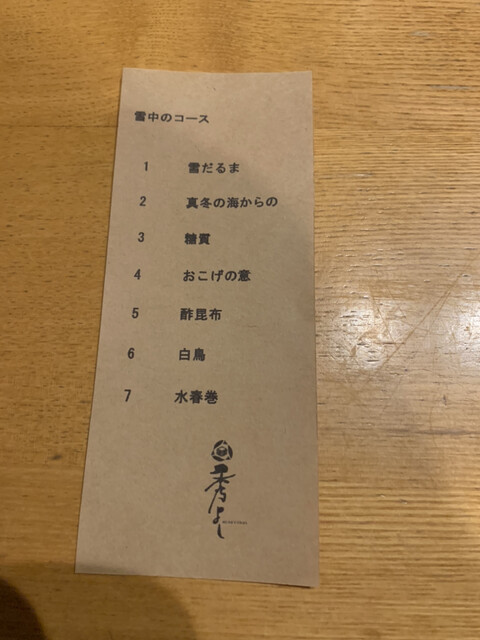 雪中のコース
1 雪だるま
2 真冬の海からの
3 糖質
4 おこげの意
5 酢昆布
6 白鳥
7 水春巻
秀よし